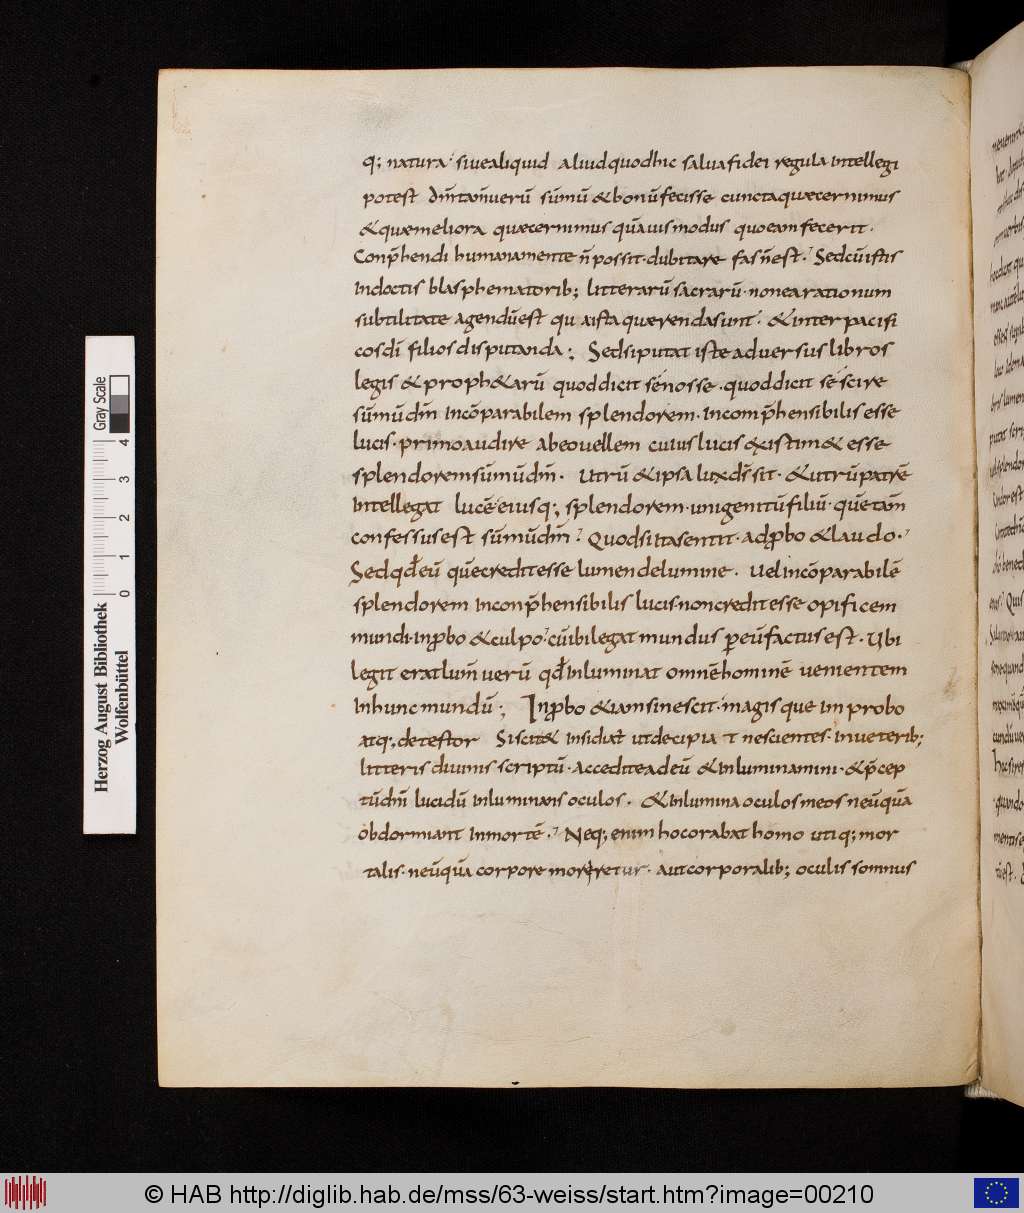 q; natura· siue aliquid aliud quod hic salua fidei regula intellegi
potest dn̄m tam̄ uerū sūmū & bonū fecisse cuncta quae cernimus
& quae meliora quae cernimus quāuis modus quo eam fecerit·
Conp̄hendi humana mente n̄ possit· dubitare fas n̄ est· Sed cū istis
indoctis blasphematorib; litterarū sacrarū· non ea rationum
subtilitate agendū est qua ista querenda sunt· & inter pacifi
cos dī filios disputanda; Sed si putat iste aduersus libros
legis & proph&arū quod dicit se nosse· quod dicit se scire
sūmū dm̄ incōparabilem splendorem· incomp̄hensibilis esse
lucis· primo audire ab eo uellem cuius lucis existim& esse
splendorem sūmū dm̄· Utrū & ipsa lux ds̄ sit· & utrū patrē
intellegat lucē eiusq; splendorem· unigenitū filiū· quē tam̄
confessus est sūmū dm̄· Quod si ita sentit· adp̱bo & laudo·
Sed qd̄ eū quē credit esse lumen de lumine· Uel incōparabilē
splendorem inconp̄hensibilis lucis· non credit esse opificem
mundi· inp̱bo & culpo· cū ibi legat mundus p̱ eū factus est· Ubi
legit erat lum̄ uerū qd̄ inluminat omnē hominē uenientem
in hunc mundū; Inp̱bo & iam si nescit· magisque improbo
atq; detestor Si scit & insidiat̄ ut decipiat nescientes· In ueterib;
litteris diuinis scriptū· accedite ad eū & inluminamini· & p̄cep
tū dm̄ lucidū inluminans oculos· & inlumina oculos meos neūquā
obdormiant in mortē· Neq; enim hoc orabat homo utiq; mor
talis· neūquā corpore moreretur· aut corporalib; oculis somnus
Herzog August Bibliothek
Wolfenbüttel
0 1 2 3 4
Gray Scale
© HAB http://diglib.hab.de/mss/63-weiss/start.htm?image=00210